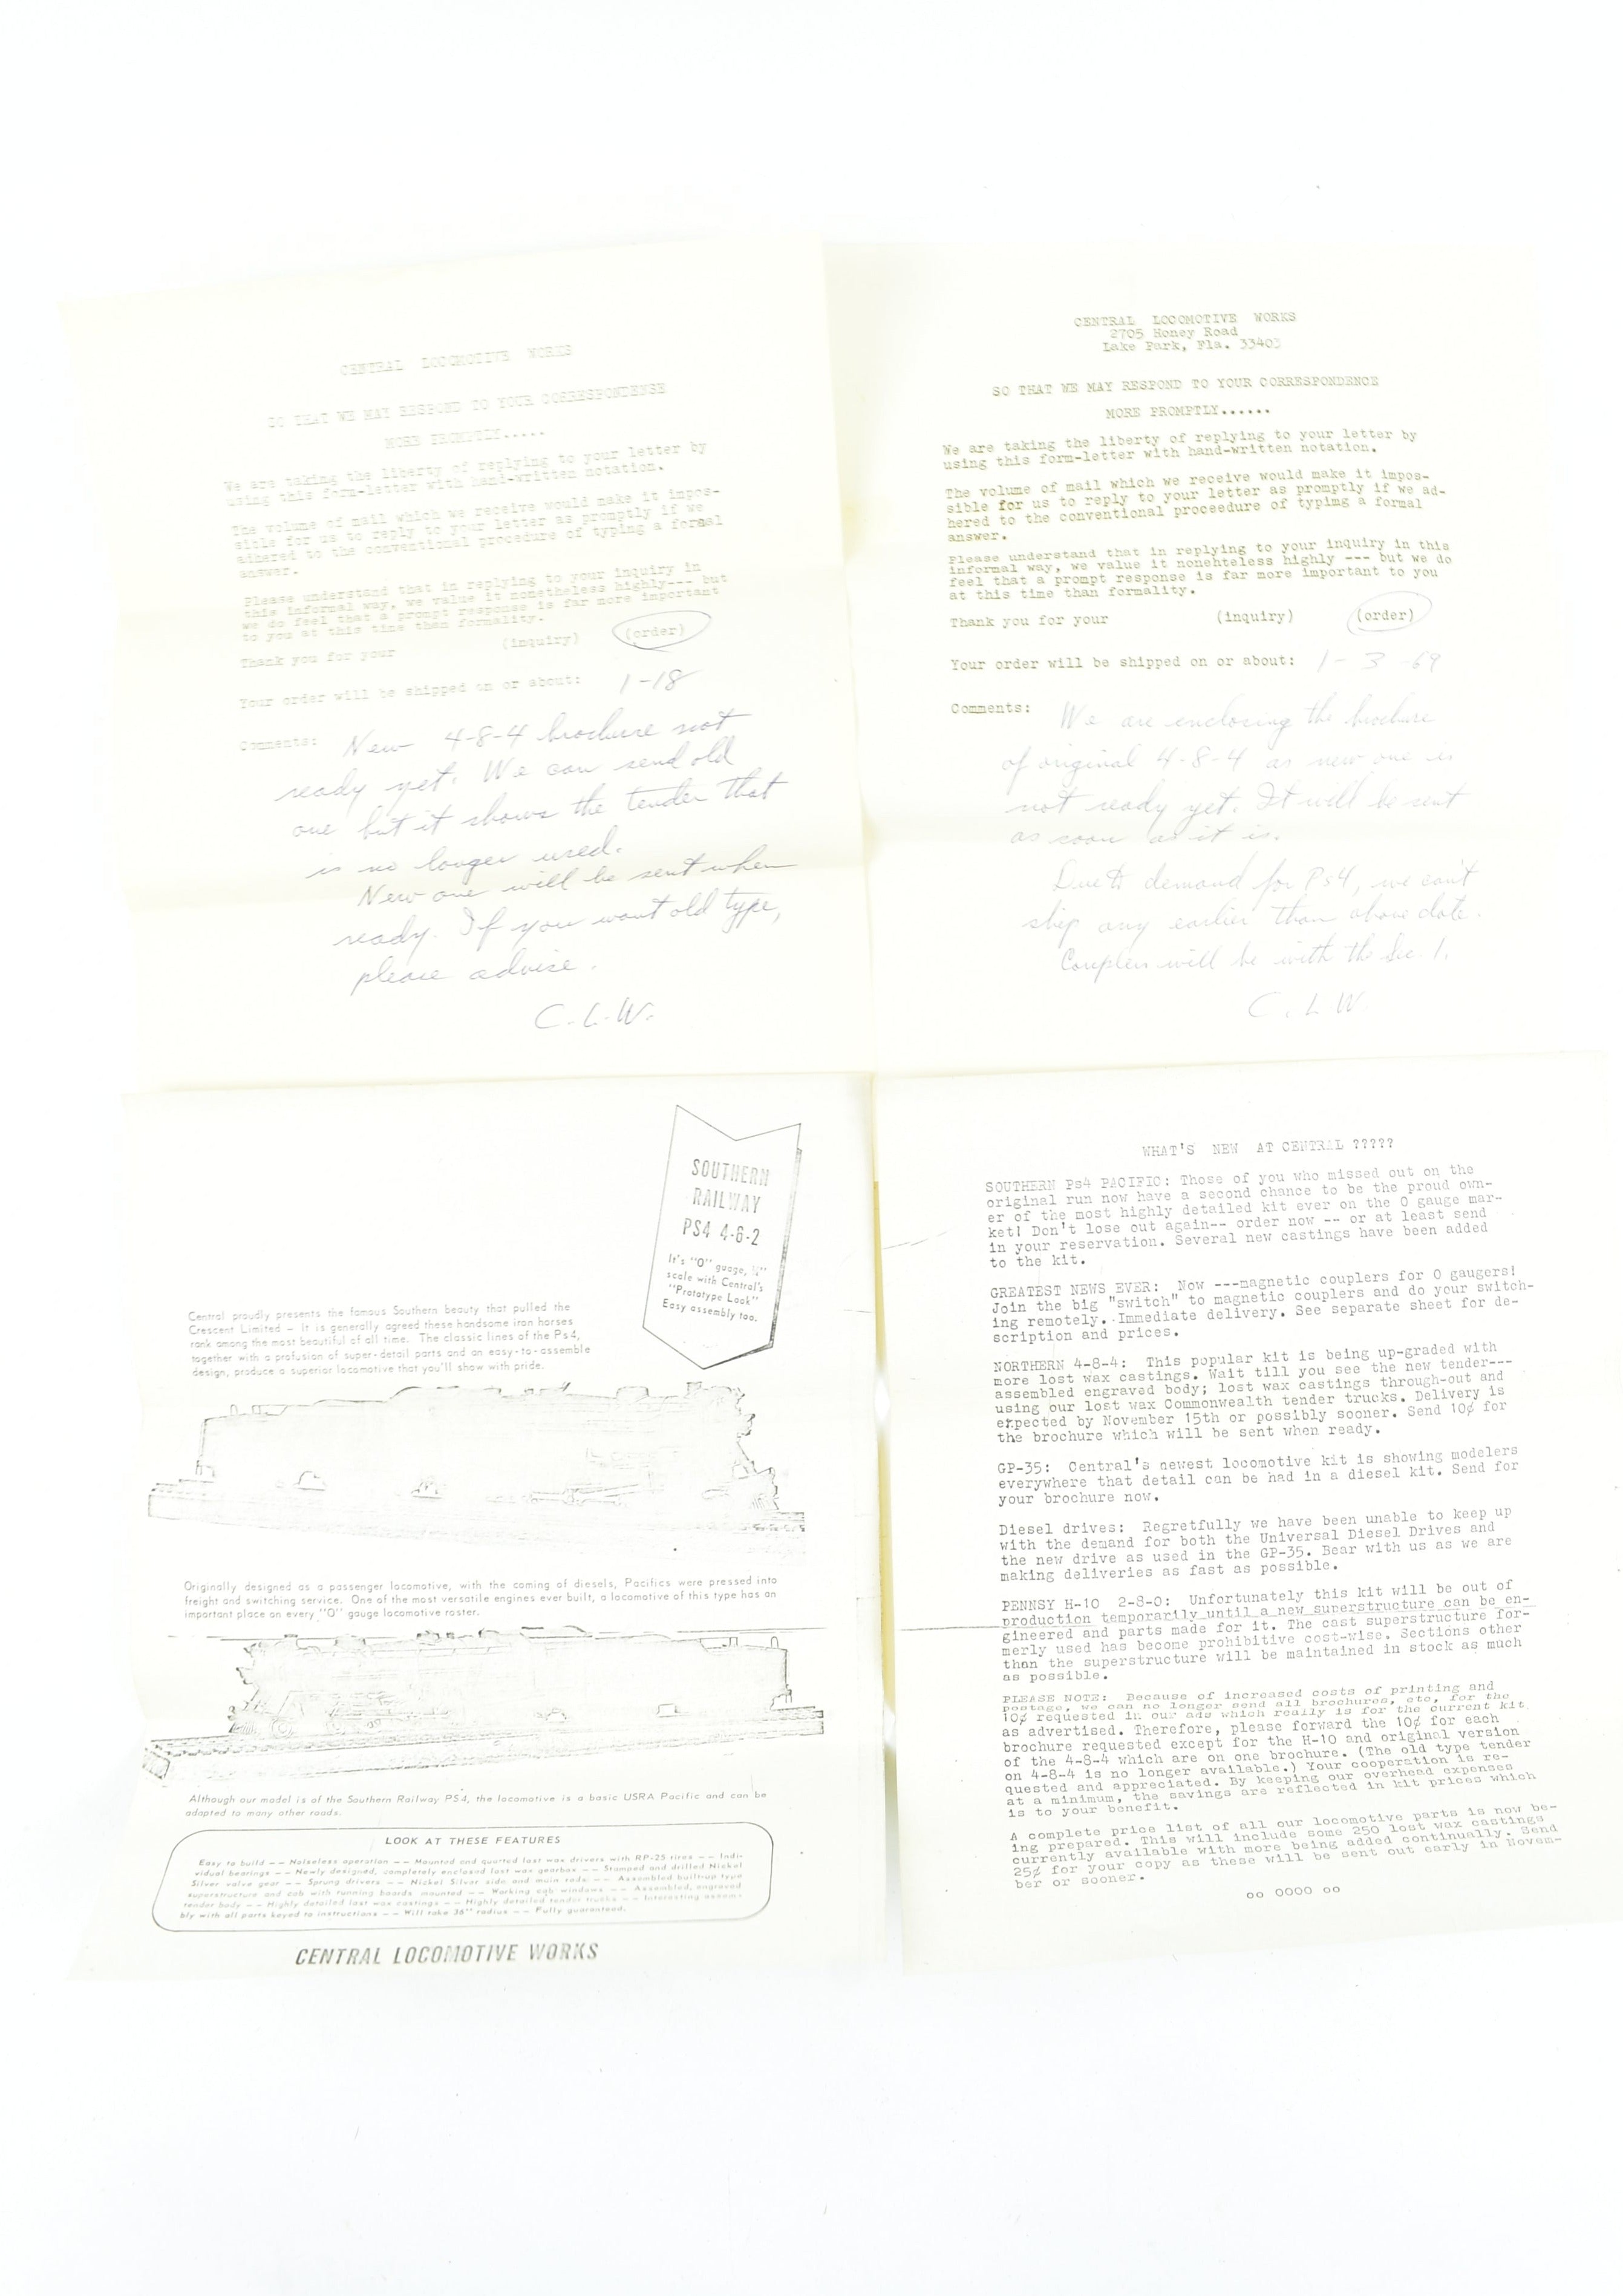 CENTRAL LOCOMOTIVE WORKS
SO THAT WE MAY RESPOND TO YOUR CORRESPONDENSE
MORE PROMPTLY.....
We are taking the liberty of replying to your letter by
using this form-letter with hand-written notation.
The volume of mail which we receive would make it impos-
sible for us to reply to your letter as promptly if we
adhered to the conventional procedure of typing a formal
answer.
Please understand that in replying to your inquiry in
this informal way, we value it nonetheless highly--- but
we do feel that a prompt response is far more important
to you at this time than formality.
Thank you for your (inquiry) (order)
Your order will be shipped on or about: 1-18
Comments: New 4-8-4 brochure not
ready yet. We can send old
one but it shows the tender that
is no longer used.
New one will be sent when
ready. If you want old type,
please advise.
C.L.W.
CENTRAL LOCOMOTIVE WORKS
2705 Honey Road
Lake Park, Fla. 33403
SO THAT WE MAY RESPOND TO YOUR CORRESPONDENCE
MORE PROMPTLY......
We are taking the liberty of replying to your letter by
using this form-letter with hand-written notation.
The volume of mail which we receive would make it impos-
sible for us to reply to your letter as promptly if we ad-
hered to the conventional proceedure of typimg a formal
answer.
Please understand that in replying to your inquiry in this
informal way, we value it nonehteless highly --- but we do
feel that a prompt response is far more important to you
at this time than formality.
Thank you for your (inquiry) (order)
Your order will be shipped on or about: 1-3-69
Comments: We are enclosing the brochure
of original 4-8-4 as new one is
not ready yet. It will be sent
as soon as it is.
Due to demand for Ps4, we can't
ship any earlier than above date.
Couplers will be with the Sec. 1.
C.L.W.
SOUTHERN
RAILWAY
PS4 4-6-2
It's "O" guage, ¼"
scale with Central's
"Prototype Look"
Easy assembly too.
Central proudly presents the famous Southern beauty that pulled the
Crescent Limited – It is generally agreed these handsome iron horses
rank among the most beautiful of all time. The classic lines of the Ps4,
together with a profusion of super-detail parts and an easy-to-assemble
design, produce a superior locomotive that you'll show with pride.
Originally designed as a passenger locomotive, with the coming of diesels, Pacifics were pressed into
freight and switching service. One of the most versatile engines ever built, a locomotive of this type has an
important place on every "O" gauge locomotive roster.
Although our model is of the Southern Railway PS4, the locomotive is a basic USRA Pacific and can be
adapted to many other roads.
LOOK AT THESE FEATURES
Easy to build –– Noiseless operation –– Mounted and quarted lost wax drivers with RP-25 tires –– Indi-
vidual bearings –– Newly designed, completely enclosed lost wax gearbox –– Stamped and drilled Nickel
Silver valve gear –– Sprung drivers –– Nickel Silver side and main rods –– Assembled built-up type
superstructure and cab with running boards mounted –– Working cab windows –– Assembled, engraved
tender body –– Highly detailed lost wax castings –– Highly detailed tender trucks –– Interesting assem-
bly with all parts keyed to instructions –– Will take 36" radius –– Fully guaranteed.
CENTRAL LOCOMOTIVE WORKS
WHAT'S NEW AT CENTRAL ?????
SOUTHERN Ps4 PACIFIC: Those of you who missed out on the
original run now have a second chance to be the proud own-
er of the most highly detailed kit ever on the O gauge mar-
ket! Don't lose out again-- order now -- or at least send
in your reservation. Several new castings have been added
to the kit.
GREATEST NEWS EVER: Now ---magnetic couplers for O gaugers!
Join the big "switch" to magnetic couplers and do your switch-
ing remotely. Immediate delivery. See separate sheet for de-
scription and prices.
NORTHERN 4-8-4: This popular kit is being up-graded with
more lost wax castings. Wait till you see the new tender---
assembled engraved body; lost wax castings through-out and
using our lost wax Commonwealth tender trucks. Delivery is
expected by November 15th or possibly sooner. Send 10¢ for
the brochure which will be sent when ready.
GP-35: Central's newest locomotive kit is showing modelers
everywhere that detail can be had in a diesel kit. Send for
your brochure now.
Diesel drives: Regretfully we have been unable to keep up
with the demand for both the Universal Diesel Drives and
the new drive as used in the GP-35. Bear with us as we are
making deliveries as fast as possible.
PENNSY H-10 2-8-0: Unfortunately this kit will be out of
production temporarily until a new superstructure can be en-
gineered and parts made for it. The cast superstructure for-
merly used has become prohibitive cost-wise. Sections other
than the superstructure will be maintained in stock as much
as possible.
PLEASE NOTE: Because of increased costs of printing and
postage, we can no longer send all brochures, etc, for the
10¢ requested in our ads which really is for the current kit
as advertised. Therefore, please forward the 10¢ for each
brochure requested except for the H-10 and original version
of the 4-8-4 which are on one brochure. (The old type tender
on 4-8-4 is no longer available.) Your cooperation is re-
quested and appreciated. By keeping our overhead expenses
at a minimum, the savings are reflected in kit prices which
is to your benefit.
A complete price list of all our locomotive parts is now be-
ing prepared. This will include some 250 lost wax castings
currently available with more being added continually. Send
25¢ for your copy as these will be sent out early in Novem-
ber or sooner.
oo 0000 oo